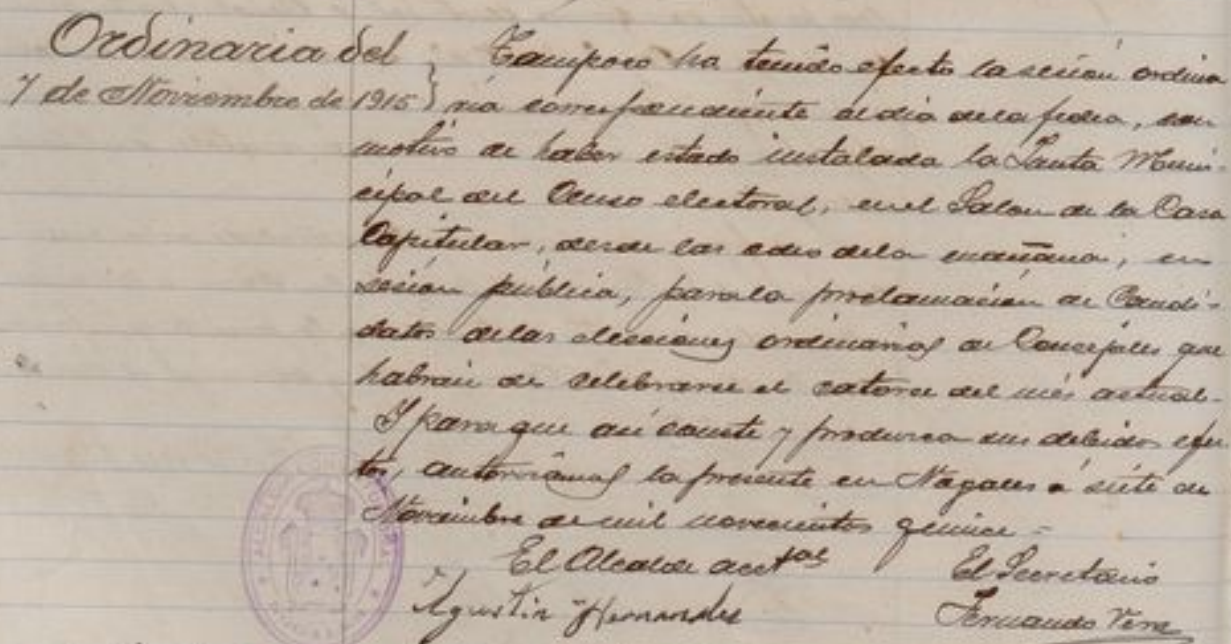 Ordinaria del
7 de Noviembre de 1915 }
Tampoco ha tenido efecto la sesión ordina
ria correspondiente al dia de la fecha, con
motivo de haber estado instalada la Junta Muni-
cipal del Censo electoral, en el Salon de la Casa
Capitular, desde las ocho de la mañana, en
sesión pública, para la proclamación de Candi-
datos de las elecciones ordinarias de Concejales que
habrán de celebrarse el catorce del més actual.
Y para que así conste y produzca sus debidos efec
tos, autorizamos la presente en Nogales á siete de
Noviembre de mil novecientos quince =
El Alcalde acctal
El Secretario
Agustin Hernandez
Fernando Vera